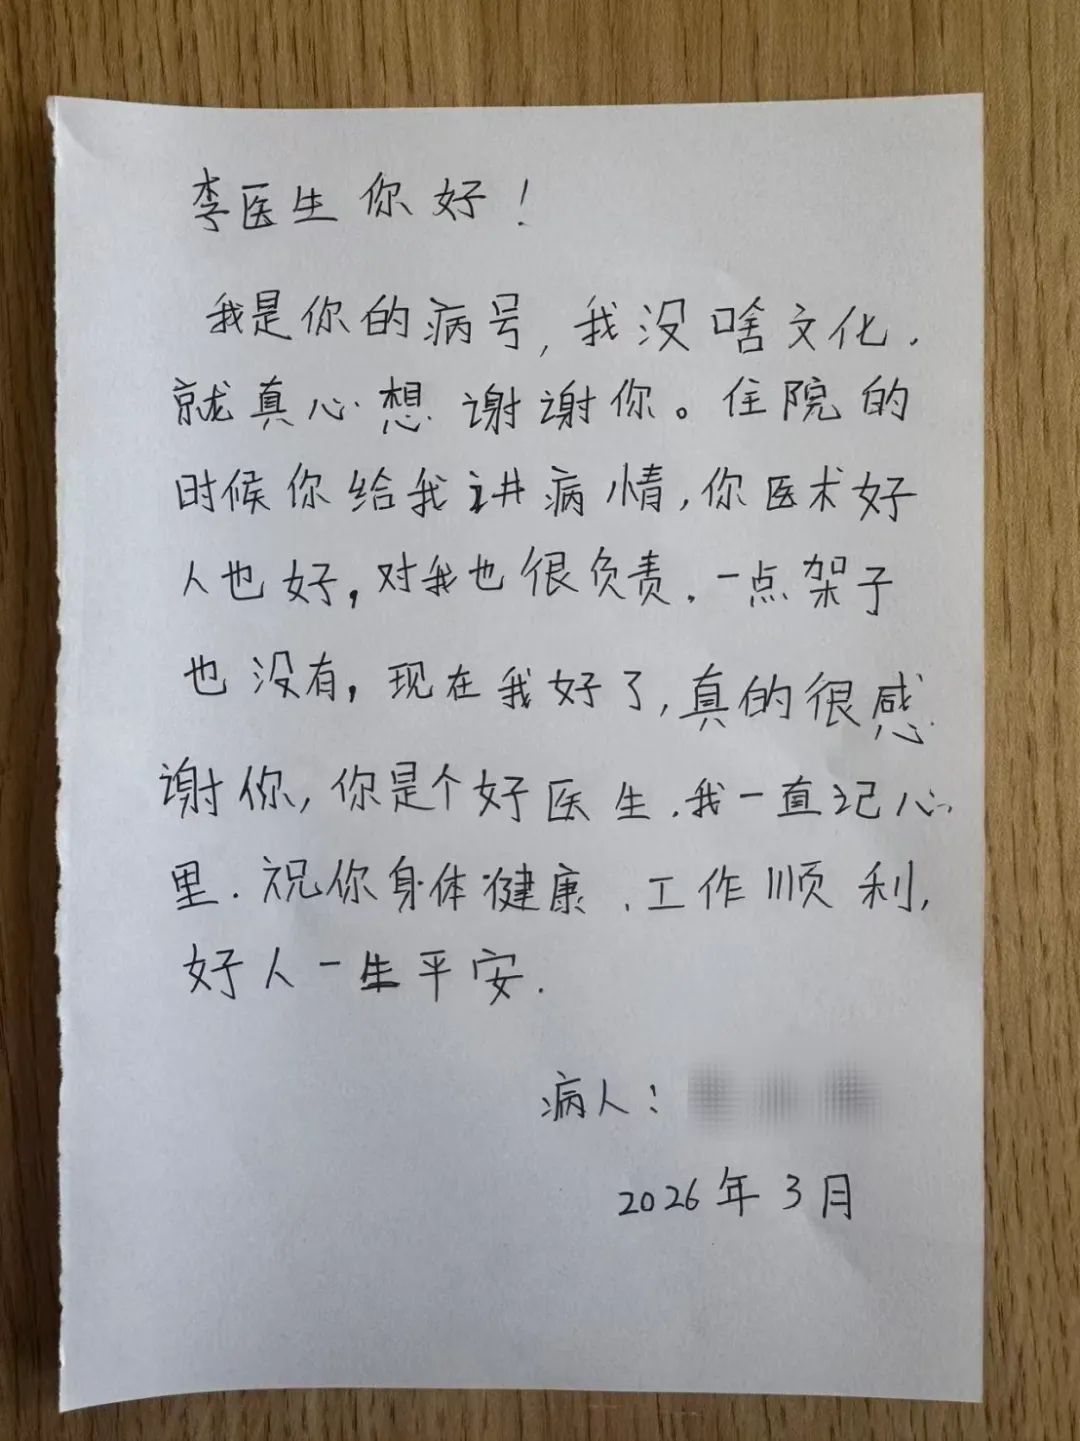 李医生你好！
我是你的病号,我没啥文化.
就真心想谢谢你。住院的
时候你给我讲病情,你医术好
人也好,对我也很负责.一点架子
也没有,现在我好了,真的很感
谢你,你是个好医生.我一直记心
里.祝你身体健康.工作顺利,
好人一生平安.
病人：
2026年3月